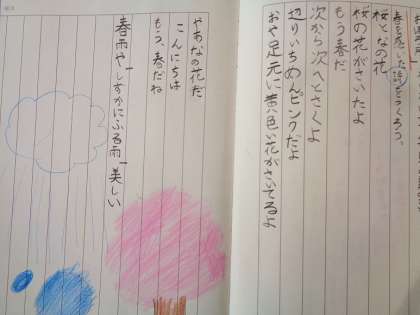 春を感じた詩をつくろう。
桜となの花
桜の花がさいたよ
もう春だ
次から次へとさくよ
辺りいちめんピンクだよ
おや足元に黄色い花がさいてるよ
やあなの花だ
こんにちは
もう、春だね
春雨やしずかにふる雨美しい